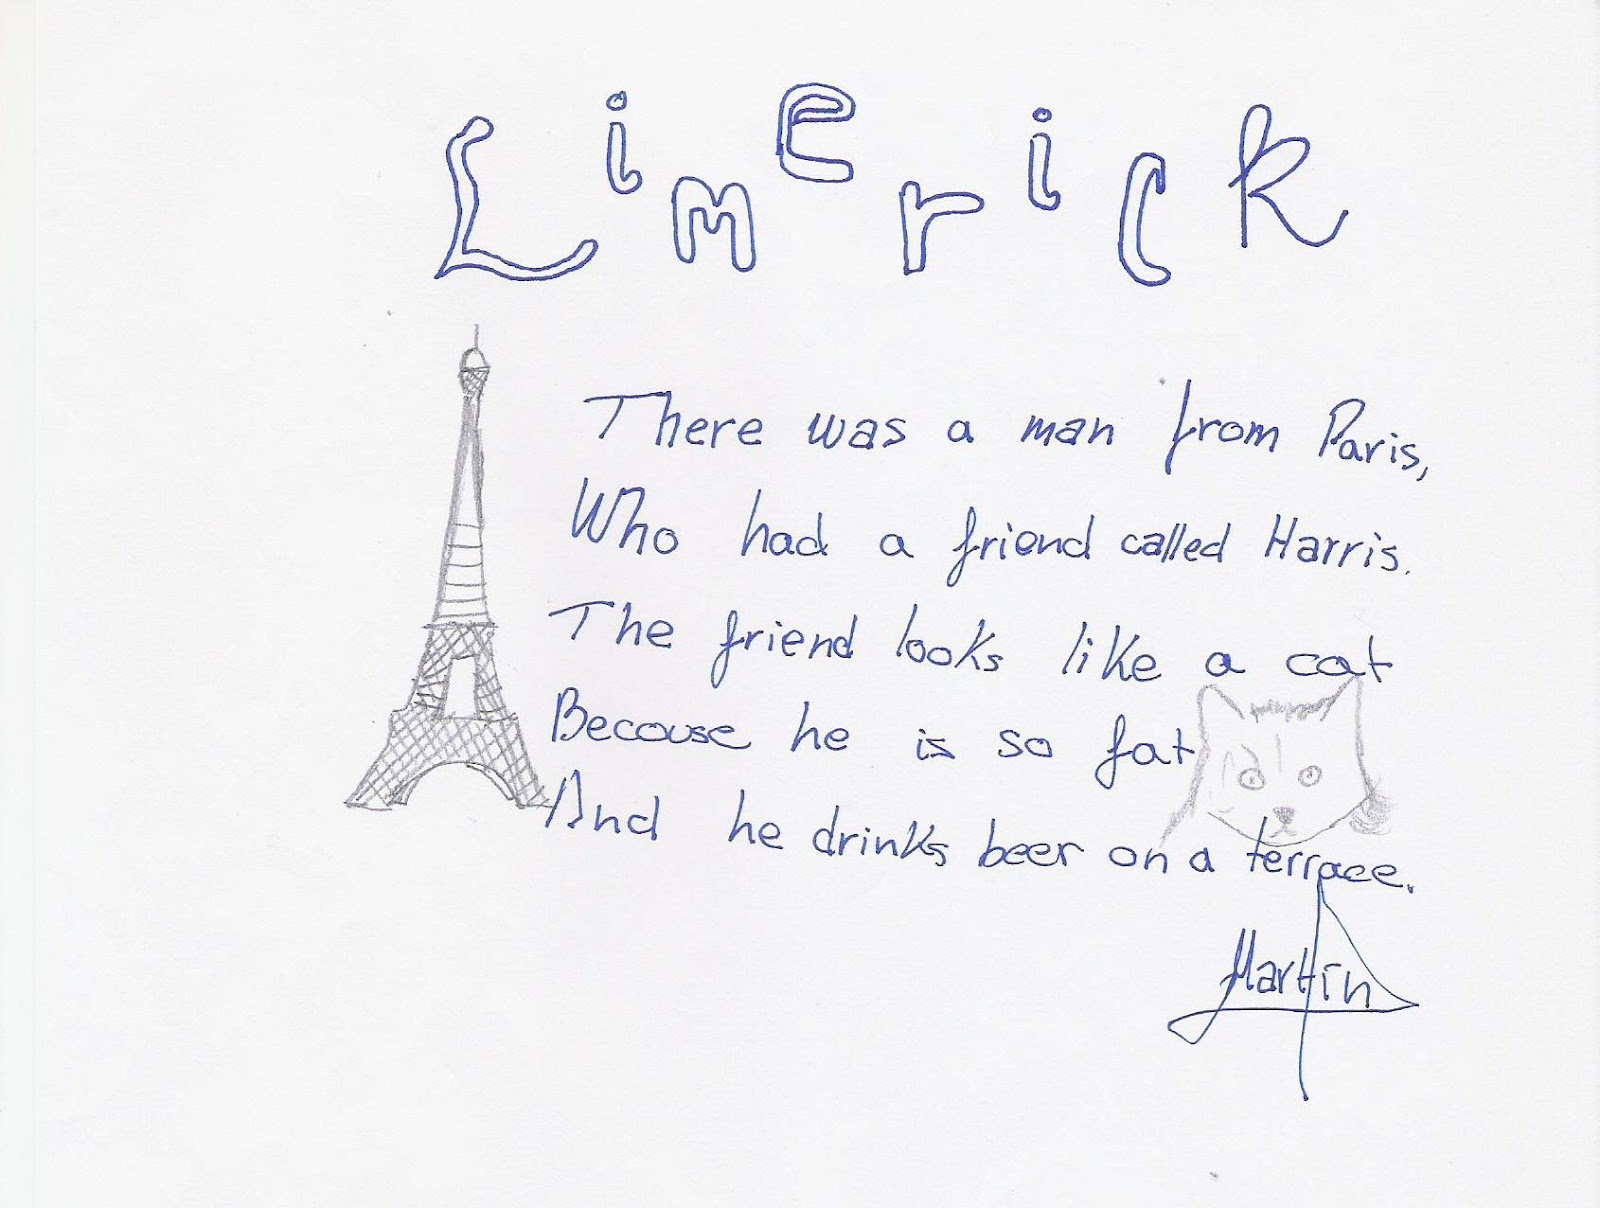 LimErick
There was a man from Paris,
Who had a friend called Harris.
The friend looks like a cat
Becouse he is so fat
And he drinks beer on a terrace.
Martin